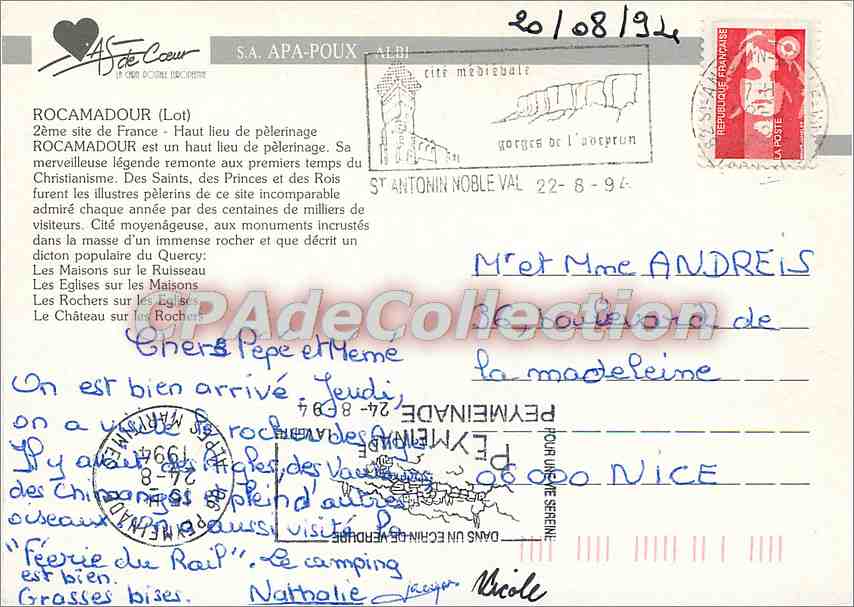 20/08/94
AS de Cœur
LA CARTE POSTALE EUROPEENNE
S.A. APA-POUX - ALBI
cité médiévale
gorges de l'aveyron
ST ANTONIN NOBLE VAL 22-8-94
REPUBLIQUE FRANÇAISE
LA POSTE
ROCAMADOUR (Lot)
2ème site de France - Haut lieu de pèlerinage
ROCAMADOUR est un haut lieu de pèlerinage. Sa
merveilleuse légende remonte aux premiers temps du
Christianisme. Des Saints, des Princes et des Rois
furent les illustres pèlerins de ce site incomparable
admiré chaque année par des centaines de milliers de
visiteurs. Cité moyenâgeuse, aux monuments incrustés
dans la masse d'un immense rocher et que décrit un
dicton populaire du Quercy:
Les Maisons sur le Ruisseau
Les Eglises sur les Maisons
Les Rochers sur les Eglises
Le Château sur les Rochers
CPAdeCollection
Mr et Mme ANDREIS
36, boulevard de
la madeleine
06000 NICE
Chers Pépé et Mémé
On est bien arrivé. Jeudi,
on a visité le rocher des Aigles
Il y avait des Aigles, des Vautours
des Chimpanzés et plein d'autres
oiseaux. On a aussi visité la
"Féerie du Rail". Le camping
est bien.
Grosses bises. Nathalie Jacques Nicole
06 PEYMEINADE
ALPES MARITIMES
24-8
1994
DANS UN ECRIN DE VERDURE
POUR UNE VIE SEREINE
PEYMEINADE
PEYMEINADE
24-8-94